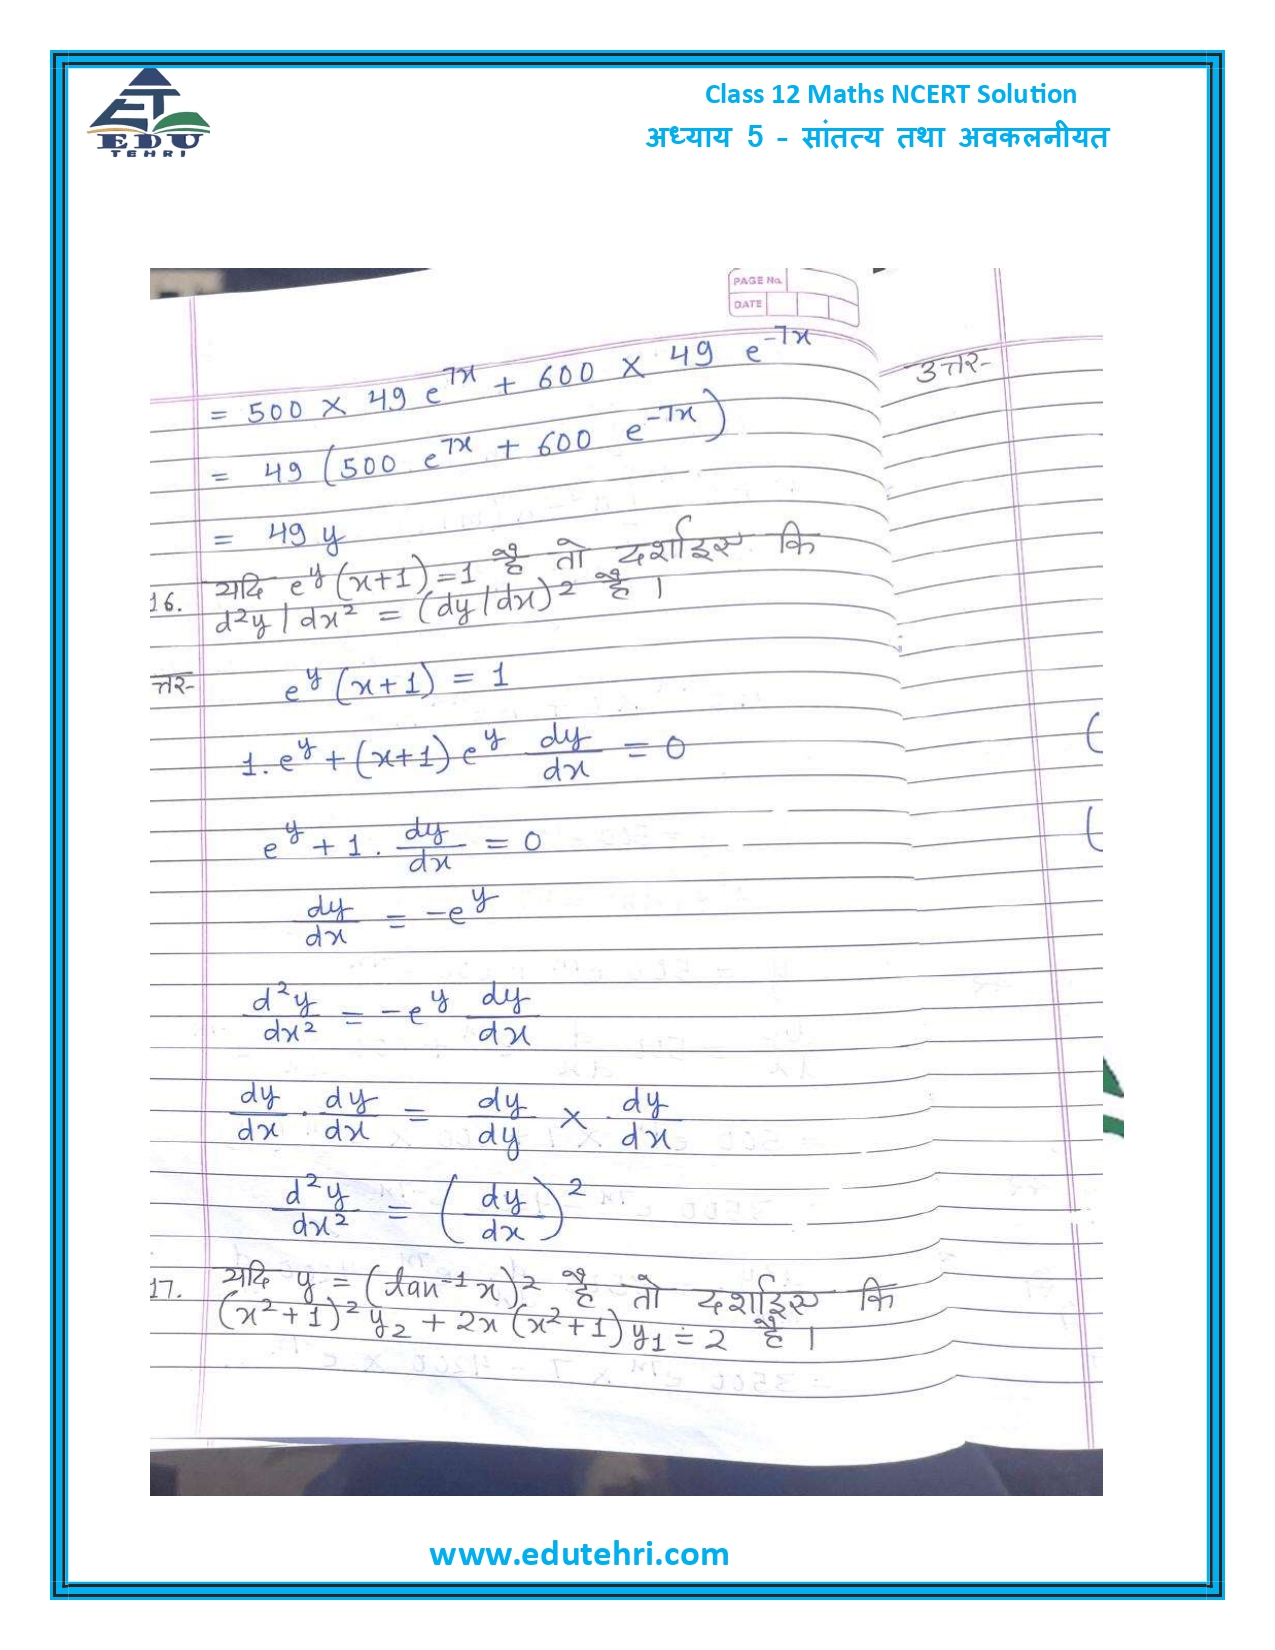 EDU
TEHRI
Class 12 Maths NCERT Solution
अध्याय 5 - सांतत्य तथा अवकलनीयत
PAGE No.
DATE
= 500 × 49 e^7x + 600 × 49 e^-7x
उत्तर-
= 49 (500 e^7x + 600 e^-7x)
= 49 y
16. यदि e^y (x+1) = 1 है तो दर्शाइए कि
d²y / dx² = (dy / dx)² है।
त्तर- e^y (x+1) = 1
1. e^y + (x+1) e^y dy/dx = 0
e^y + 1 . dy/dx = 0
dy/dx = -e^y
d²y/dx² = -e^y dy/dx
dy/dx . dy/dx = dy/dy × dy/dx
d²y/dx² = (dy/dx)²
17. यदि y = (tan⁻¹x)² है तो दर्शाइए कि
(x²+1)² y₂ + 2x (x²+1) y₁ = 2 है।
www.edutehri.com